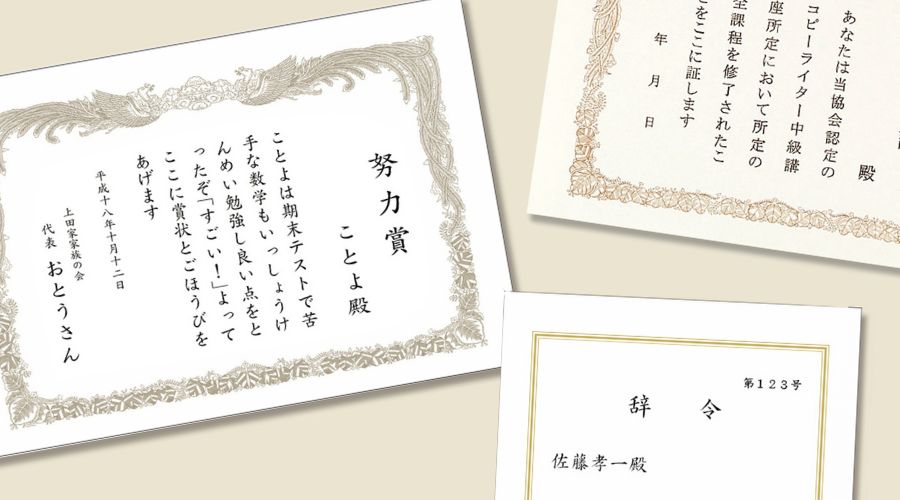 努力賞
ことよ殿
ことよは期末テストで苦
手な数学もいっしょうけ
んめい勉強し良い点をと
ったぞ「すごい！」よって
ここに賞状とごほうびを
あげます
平成十八年十月十二日
上田家家族の会
代表 おとうさん
殿
あなたは当協会認定の
コピーライター中級講
座所定において所定の
全課程を修了されたこ
とをここに証します
年 月 日
第１２３号
辞 令
佐藤孝一殿